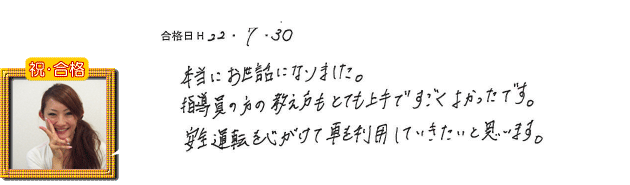 合格日 H 22・7・30
祝・合格
本当にお世話になりました。
指導員の方の教え方もとても上手ですごくよかったです。
安全運転を心がけて車を利用していきたいと思います。